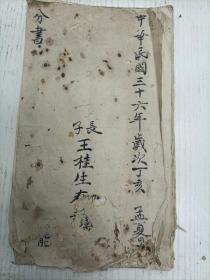 中華民國三十六年 歲次丁亥 孟夏
長子 王桂生
分書